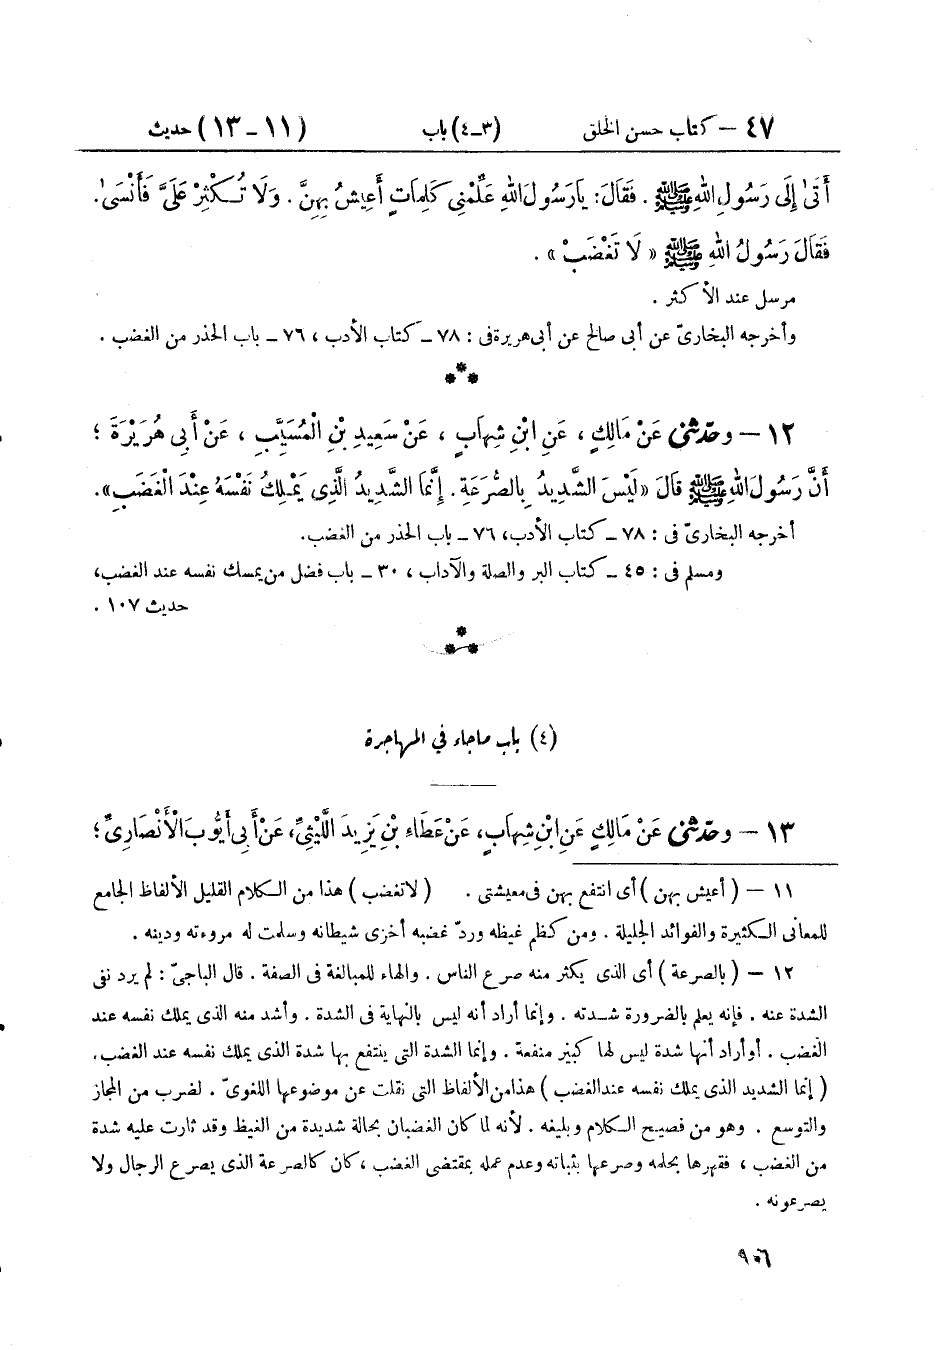 ٤٧ – كتاب حسن الخلق (٣ـ٤) باب (١١ - ١٣) حديث
أَتَى إِلَى رَسُولِ اللهِ ﷺ . فَقَالَ: يَارَسُولَ اللهِ عَلِّمْنِى كَلِمَاتٍ أَعِيشُ بِهِنَّ . وَلَا تُكْثِرْ عَلَىَّ فَأَنْسَىٰ.
فَقَالَ رَسُولُ اللهِ ﷺ « لَا تَغْضَبْ » .
مرسل عند الأكثر .
وأخرجه البخارىّ عن أبى صالح عن أبى هريرة فى : ٧٨ ـ كتاب الأدب ، ٧٦ ـ باب الحذر من الغضب .
***
١٢ – وحدّثنى عَنْ مَالِكٍ ، عَنِ ابْنِ شِهَابٍ ، عَنْ سَعِيدِ بْنِ الْمُسَيَّبِ ، عَنْ أَبِى هُرَيْرَةَ ؛
أَنَّ رَسُولَ اللهِ ﷺ قَالَ « لَيْسَ الشَّدِيدُ بِالصُّرَعَةِ . إِنَّمَا الشَّدِيدُ الَّذِى يَمْلِكُ نَفْسَهُ عِنْدَ الْغَضَبِ».
أخرجه البخارىّ فى : ٧٨ ـ كتاب الأدب، ٧٦ ـ باب الحذر من الغضب.
ومسلم فى : ٤٥ ـ كتاب البر والصلة والآداب ، ٣٠ ـ باب فضل من يمسك نفسه عند الغضب،
حديث ١٠٧ .
***
(٤) باب ماجاء في المهاجرة
١٣ – وحدّثنى عَنْ مَالِكٍ عَنِ ابْنِ شِهَابٍ، عَنْ عَطَاءِ بْنِ يَزِيدَ اللَّيْثِىِّ، عَنْ أَبِى أَيُّوبَ الْأَنْصَارِىِّ؛
١١ – ( أعيش بهن ) أى انتفع بهن فى معيشتى . ( لاتغضب ) هذا من الكلام القليل الألفاظ الجامع
للمعانى الكثيرة والفوائد الجليلة . ومن كظم غيظه وردّ غضبه أخزى شيطانه وسلمت له مروءته ودينه .
١٢ – ( بالصرعة ) أى الذى يكثر منه صرع الناس . والهاء للمبالغة فى الصفة . قال الباجىّ : لم يرد نفى
الشدة عنه . فإنه يعلم بالضرورة شدته . وإنما أراد أنه ليس بالنهاية فى الشدة . وأشد منه الذى يملك نفسه عند
الغضب . أو أراد أنها شدة ليس لها كبير منفعة . وإنما الشدة التى ينتفع بها شدة الذى يملك نفسه عند الغضب.
( إنما الشديد الذى يملك نفسه عندالغضب ) هذامن الألفاظ التى نقلت عن موضوعها اللغوىّ . لضرب من المجاز
والتوسع . وهو من فصيح الكلام وبليغه . لأنه لما كان الغضبان بحالة شديدة من الغيظ وقد ثارت عليه شدة
من الغضب ، فقهرها بحلمه وصرعها بثباته وعدم عمله بمقتضى الغضب ، كان كالصرعة الذى يصرع الرجال ولا
يصرعونه .
٩٠٦